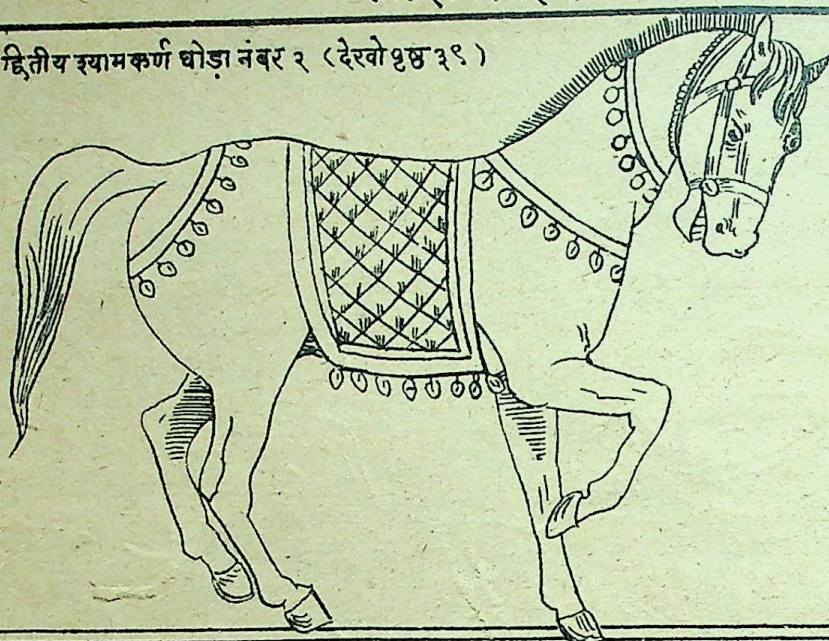 द्वितीय श्यामकर्ण घोड़ा नंबर २ (देखो पृष्ठ ३९)